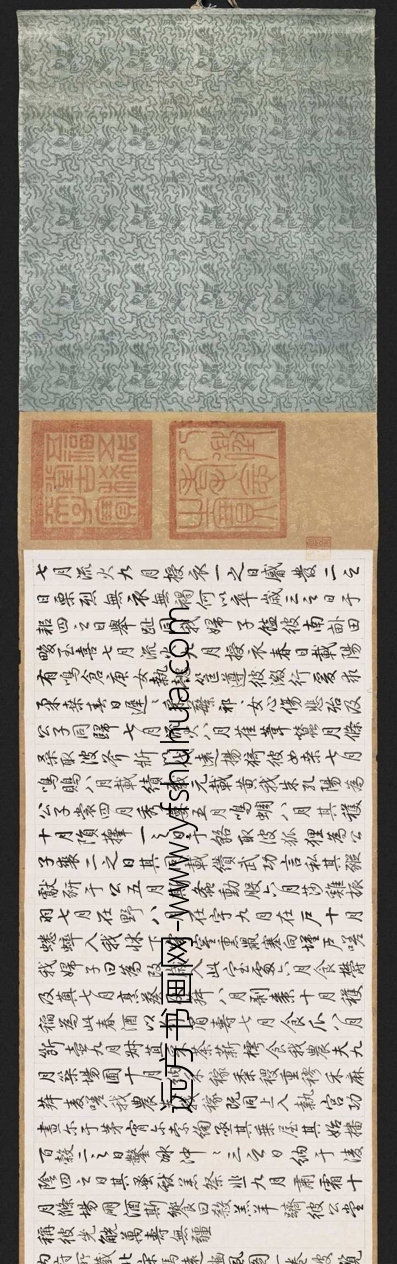 七月流火九月授衣一之日觱發二之
日栗烈無衣無褐何以卒歲三之日于
耜四之日舉趾同我婦子饁彼南畝田
畯至喜七月流火九月授衣春日載陽
有鳴倉庚女執懿筐遵彼微行爰求
柔桑春日遲采蘩祁女心傷悲殆及
公子同歸七月流火八月萑葦蠶月條
桑取彼斧斨以伐遠揚猗彼女桑七月
鳴鵙八月載績載玄載黃我朱孔陽為
公子裳四月秀葽五月鳴蜩八月其穫
十月隕蘀一之日于貉取彼狐狸為公
子裘二之日其同載纘武功言私其豵
獻豜于公五月斯螽動股六月莎雞振
羽七月在野八月在宇九月在戶十月
蟋蟀入我牀下穹窒熏鼠塞向墐戶嗟
我婦子曰為改歲入此室處六月食鬱
及薁七月烹葵及菽八月剝棗十月穫
稻為此春酒以介眉壽七月食瓜八月
斷壺九月叔苴采荼薪樗食我農夫九
月築場圃十月納禾稼黍稷重穋禾麻
菽麥嗟我農夫我稼既同上入執宮功
晝爾于茅宵爾索綯亟其乘屋其始播
百穀二之日鑿冰沖〻三之日納于凌
陰四之日其蚤獻羔祭韭九月肅霜十
月滌場朋酒斯饗曰殺羔羊躋彼公堂
稱彼兕觥萬壽無疆
远方书画网-www.yfshuhua.com